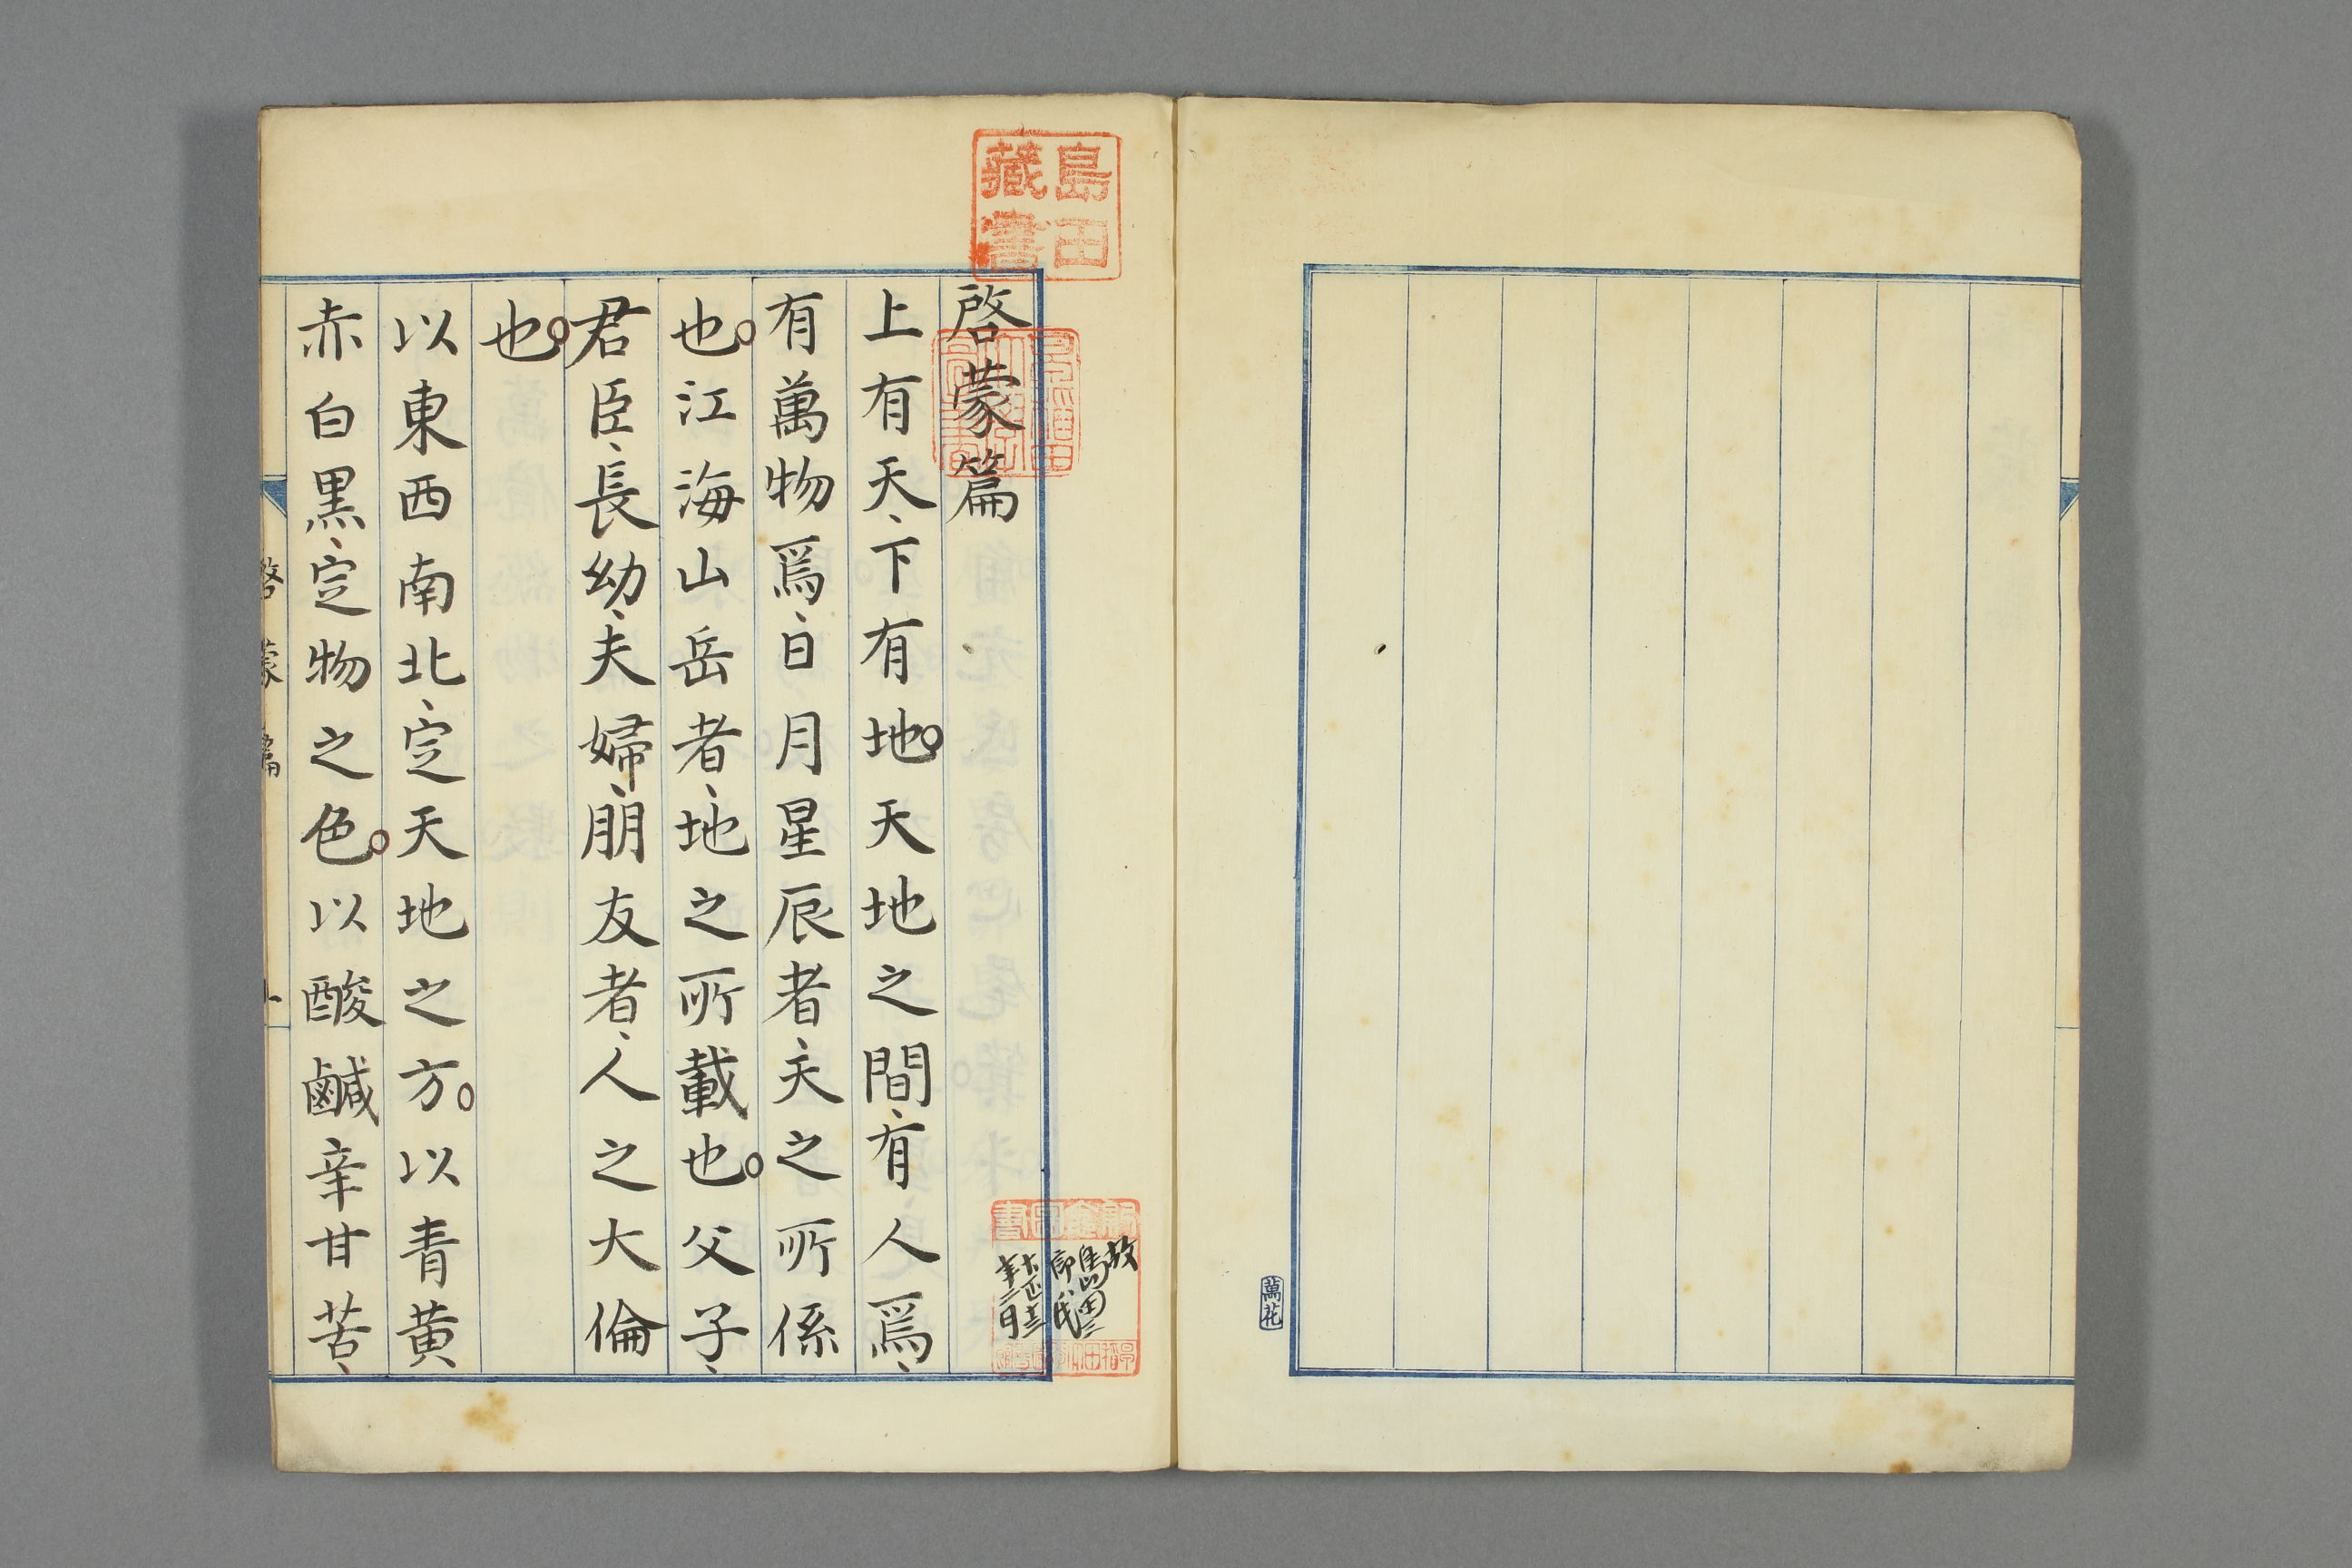 島田
藏書
啓蒙篇
上有天、下有地。天地之間、有人焉、
有萬物焉、日月星辰者、天之所係
也。江海山岳者、地之所載也。父子、
君臣、長幼、夫婦、朋友者、人之大倫
也。
以東西南北、定天地之方。以青黄
赤白黒、定物之色。以酸鹹辛甘苦、
啓蒙篇
故
島田三
郎氏
萬花